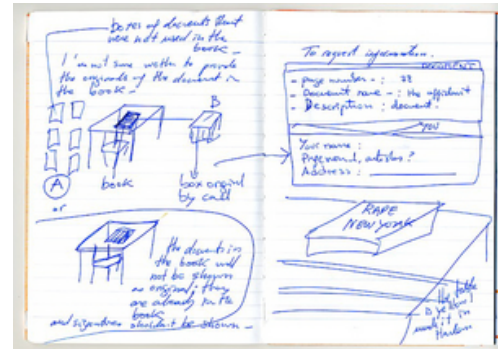 Boxes of documents that
were not used in the
book -
I'm not sure wether to provide
the originals of the document in
the book -
B
A
book
box original
by call
or
the documents in
the book will
not be shown
as original, they
are already in the
book
and signatures shouldn't be shown -
To request information.
DOCUMENT
- page number - : 28
- Document name - : the affidavit
- Description : document.
YOU
Your name :
Address :
RAPE
NEW YORK
the table
is yellow
made it in
Harlem